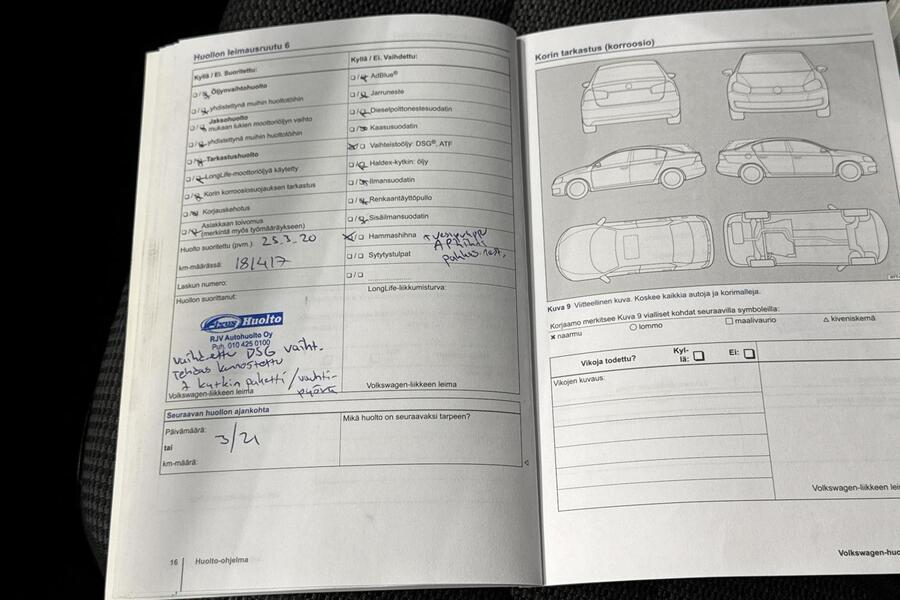 Huollon leimausruutu 6
Kyllä / Ei. Suoritettu:
❑/❑ Öljynvaihtohuolto
❑/❑ yhdistettynä muihin huoltotöihin
Jaksohuolto
❑/❑ mukaan lukien moottoriöljyn vaihto
❑/❑ yhdistettynä muihin huoltotöihin
❑/❑ Tarkastushuolto
❑/❑ LongLife-moottoriöljyä käytetty
❑/❑ Korin korroosiosuojauksen tarkastus
❑/❑ Korjauskehotus
❑/❑ Asiakkaan toivomus
(merkintä myös työmääräykseen)
Huolto suoritettu (pvm.): 25.3.20
km-määrässä: 181417
Laskun numero:
Huollon suorittanut:
Huolto
RJV Autohuolto Oy
Puh. 010 425 0100
vaihdettu DSG vaiht.
Tehdas kunnostettu
2 kytkin paketti / vauhti-
pyörä
Volkswagen-liikkeen leima
Kyllä / Ei. Vaihdettu:
❑/❑ AdBlue®
❑/❑ Jarruneste
❑/❑ Dieselpolttonestesuodatin
❑/❑ Kaasusuodatin
❑/❑ Vaihteistoöljy: DSG®, ATF
❑/❑ Haldex-kytkin: öljy
❑/❑ Ilmansuodatin
❑/❑ Renkaantäyttöpullo
❑/❑ Sisäilmansuodatin
❑/❑ Hammashihna
❑/❑ Sytytystulpat
❑/❑
LongLife-liikkumisturva:
Volkswagen-liikkeen leima
Seuraavan huollon ajankohta
Päivämäärä:
3/21
tai
km-määrä:
Mikä huolto on seuraavaksi tarpeen?
16 Huolto-ohjelma
Korin tarkastus (korroosio)
Kuva 9 Viitteellinen kuva. Koskee kaikkia autoja ja korimalleja.
Korjaamo merkitsee Kuva 9 vialliset kohdat seuraavilla symboleilla:
x naarmu ○ lommo □ maalivaurio △ kiveniskemä
Vikoja todettu? Kyl-
lä: ❑ Ei: ❑
Vikojen kuvaus:
Volkswagen-liikkeen